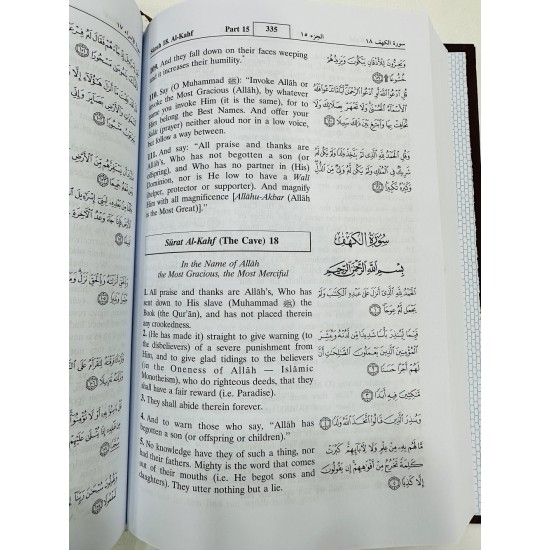 Sûrah 18. Al-Kahf
Part 15
335
الجزء ١٥
سورة الكهف ١٨
109. And they fall down on their faces weeping
and it increases their humility.
وَيَخِرُّونَ لِلْأَذْقَانِ يَبْكُونَ وَيَزِيدُهُمْ
خُشُوعًا ۩ ١٠٩
110. Say (O Muhammad ﷺ): "Invoke Allâh or
invoke the Most Gracious (Allâh), by whatever
name you invoke Him (it is the same), for to
Him belong the Best Names. And offer your
Salât (prayer) neither aloud nor in a low voice,
but follow a way between.
قُلِ ادْعُوا اللَّهَ أَوِ ادْعُوا الرَّحْمَٰنَ أَيًّا مَّا تَدْعُوا فَلَهُ
الْأَسْمَاءُ الْحُسْنَىٰ وَلَا تَجْهَرْ بِصَلَاتِكَ وَلَا
تُخَافِتْ بِهَا وَابْتَغِ بَيْنَ ذَٰلِكَ سَبِيلًا ١١٠
111. And say: "All praise and thanks are
Allâh's, Who has not begotten a son (or
offspring), and Who has no partner in (His)
Dominion, nor is He low to have a Walî
(helper, protector or supporter). And magnify
Him with all magnificence [Allâhu-Akbar (Allâh
is the Most Great)]."
وَقُلِ الْحَمْدُ لِلَّهِ الَّذِي لَمْ يَتَّخِذْ وَلَدًا وَلَمْ يَكُن لَّهُ
شَرِيكٌ فِي الْمُلْكِ وَلَمْ يَكُن لَّهُ وَلِيٌّ مِّنَ الذُّلِّ
وَكَبِّرْهُ تَكْبِيرًا ١١١
Sûrat Al-Kahf (The Cave) 18
سُورَةُ الْكَهْفِ
In the Name of Allâh
the Most Gracious, the Most Merciful
بِسْمِ اللَّهِ الرَّحْمَٰنِ الرَّحِيمِ
1. All praise and thanks are Allâh's, Who has
sent down to His slave (Muhammad ﷺ) the
Book (the Qur'ân), and has not placed therein
any crookedness.
الْحَمْدُ لِلَّهِ الَّذِي أَنزَلَ عَلَىٰ عَبْدِهِ الْكِتَابَ وَلَمْ
يَجْعَل لَّهُ عِوَجًا ١
2. (He has made it) straight to give warning (to
the disbelievers) of a severe punishment from
Him, and to give glad tidings to the believers
(in the Oneness of Allâh — Islâmic
Monotheism), who do righteous deeds, that they
shall have a fair reward (i.e. Paradise).
قَيِّمًا لِّيُنذِرَ بَأْسًا شَدِيدًا مِّن لَّدُنْهُ وَيُبَشِّرَ
الْمُؤْمِنِينَ الَّذِينَ يَعْمَلُونَ الصَّالِحَاتِ أَنَّ
لَهُمْ أَجْرًا حَسَنًا ٢
3. They shall abide therein forever.
مَّاكِثِينَ فِيهِ أَبَدًا ٣
4. And to warn those who say, "Allâh has
begotten a son (or offspring or children)."
وَيُنذِرَ الَّذِينَ قَالُوا اتَّخَذَ اللَّهُ وَلَدًا ٤
5. No knowledge have they of such a thing, nor
had their fathers. Mighty is the word that comes
out of their mouths (i.e. He begot sons and
daughters). They utter nothing but a lie.
مَّا لَهُم بِهِ مِنْ عِلْمٍ وَلَا لِآبَائِهِمْ كَبُرَتْ
كَلِمَةً تَخْرُجُ مِنْ أَفْوَاهِهِمْ إِن يَقُولُونَ
إِلَّا كَذِبًا ٥